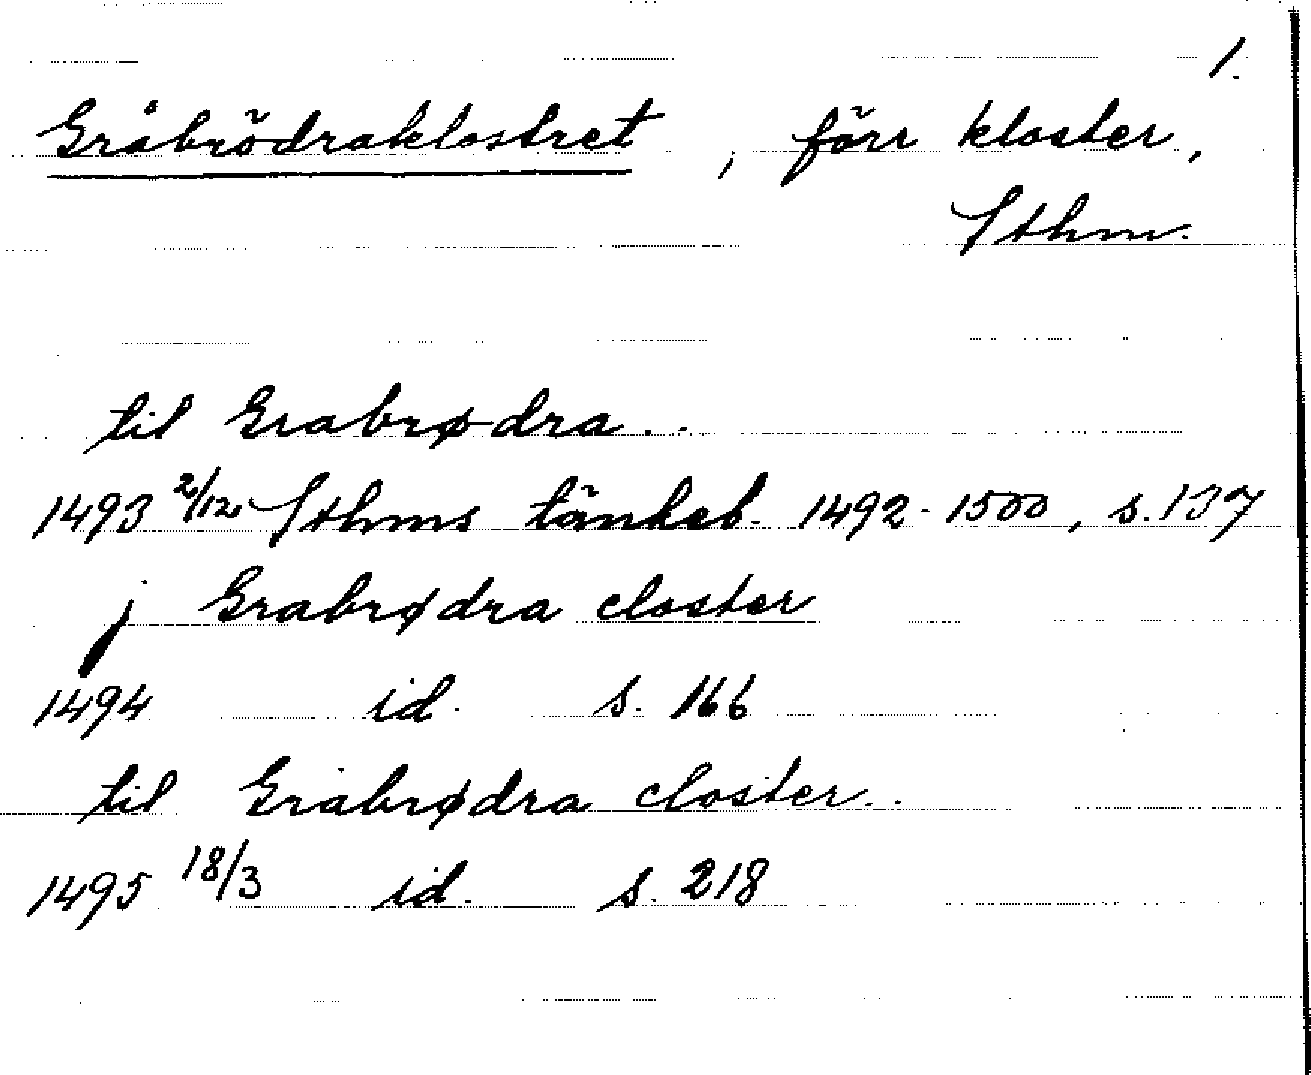 1.
Gråbrödraklostret, förr kloster,
Sthm.
til Grabrødra..
1493 2/12 Sthms tänkeb. 1492-1500, s. 137
j Grabrødra closter
1494 id. s. 166
til Grabrødra closter..
1495 18/3 id. s. 218